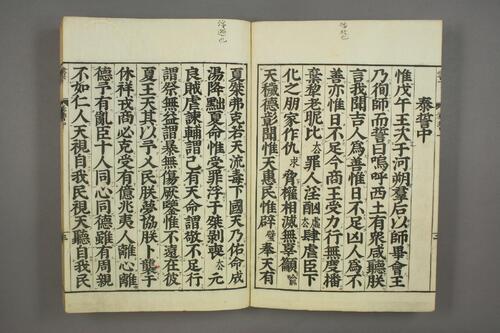 泰誓中
惟戊午王次于河朔羣后以師畢會王
乃徇師而誓曰嗚呼西土有衆咸聽朕
言我聞吉人為善惟日不足凶人為不
善亦惟日不足今商王受力行無度播
棄犂老昵比去罪人淫酗肆虐臣下
化之朋家作仇求脅權相滅無辜籲
天穢德彰聞惟天惠民惟辟璧奉天有
夏桀弗克若天流毒下國天乃佑命成
湯降黜夏命惟受罪浮于桀剝喪去元
良賊虐諫輔謂己有天命謂敬不足行
謂祭無益謂暴無傷厥鑒惟不遠在彼
夏王天其以予乂民朕夢協朕卜襲于
休祥戎商必克受有億兆夷人離心離
德予有亂臣十人同心同德雖有周親
不如仁人天視自我民視天聽自我民